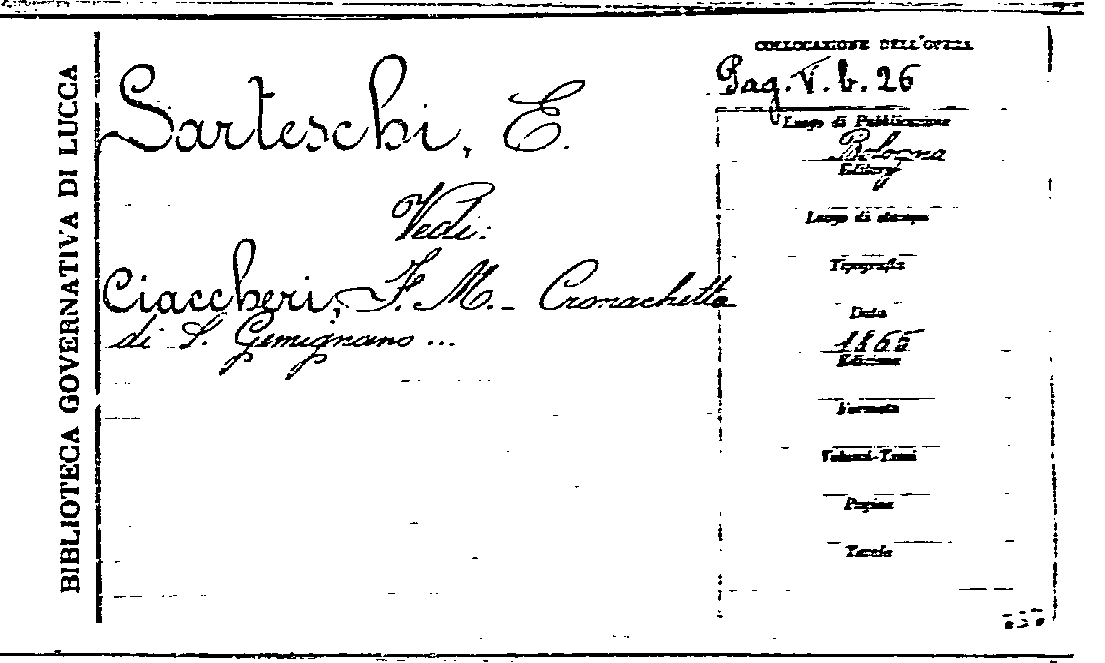 BIBLIOTECA GOVERNATIVA DI LUCCA
Sarteschi, E.
Vedi:
Ciaccheri, F. M. - Cronachetta
di S. Gemignano ...
COLLOCAZIONE DELL'OPERA
Pag. V. b. 26
Luogo di Pubblicazione
Bologna
Editore
Luogo di stampa
Tipografia
Data
1865
Edizione
Formato
Volumi-Tomi
Pagine
Tavole